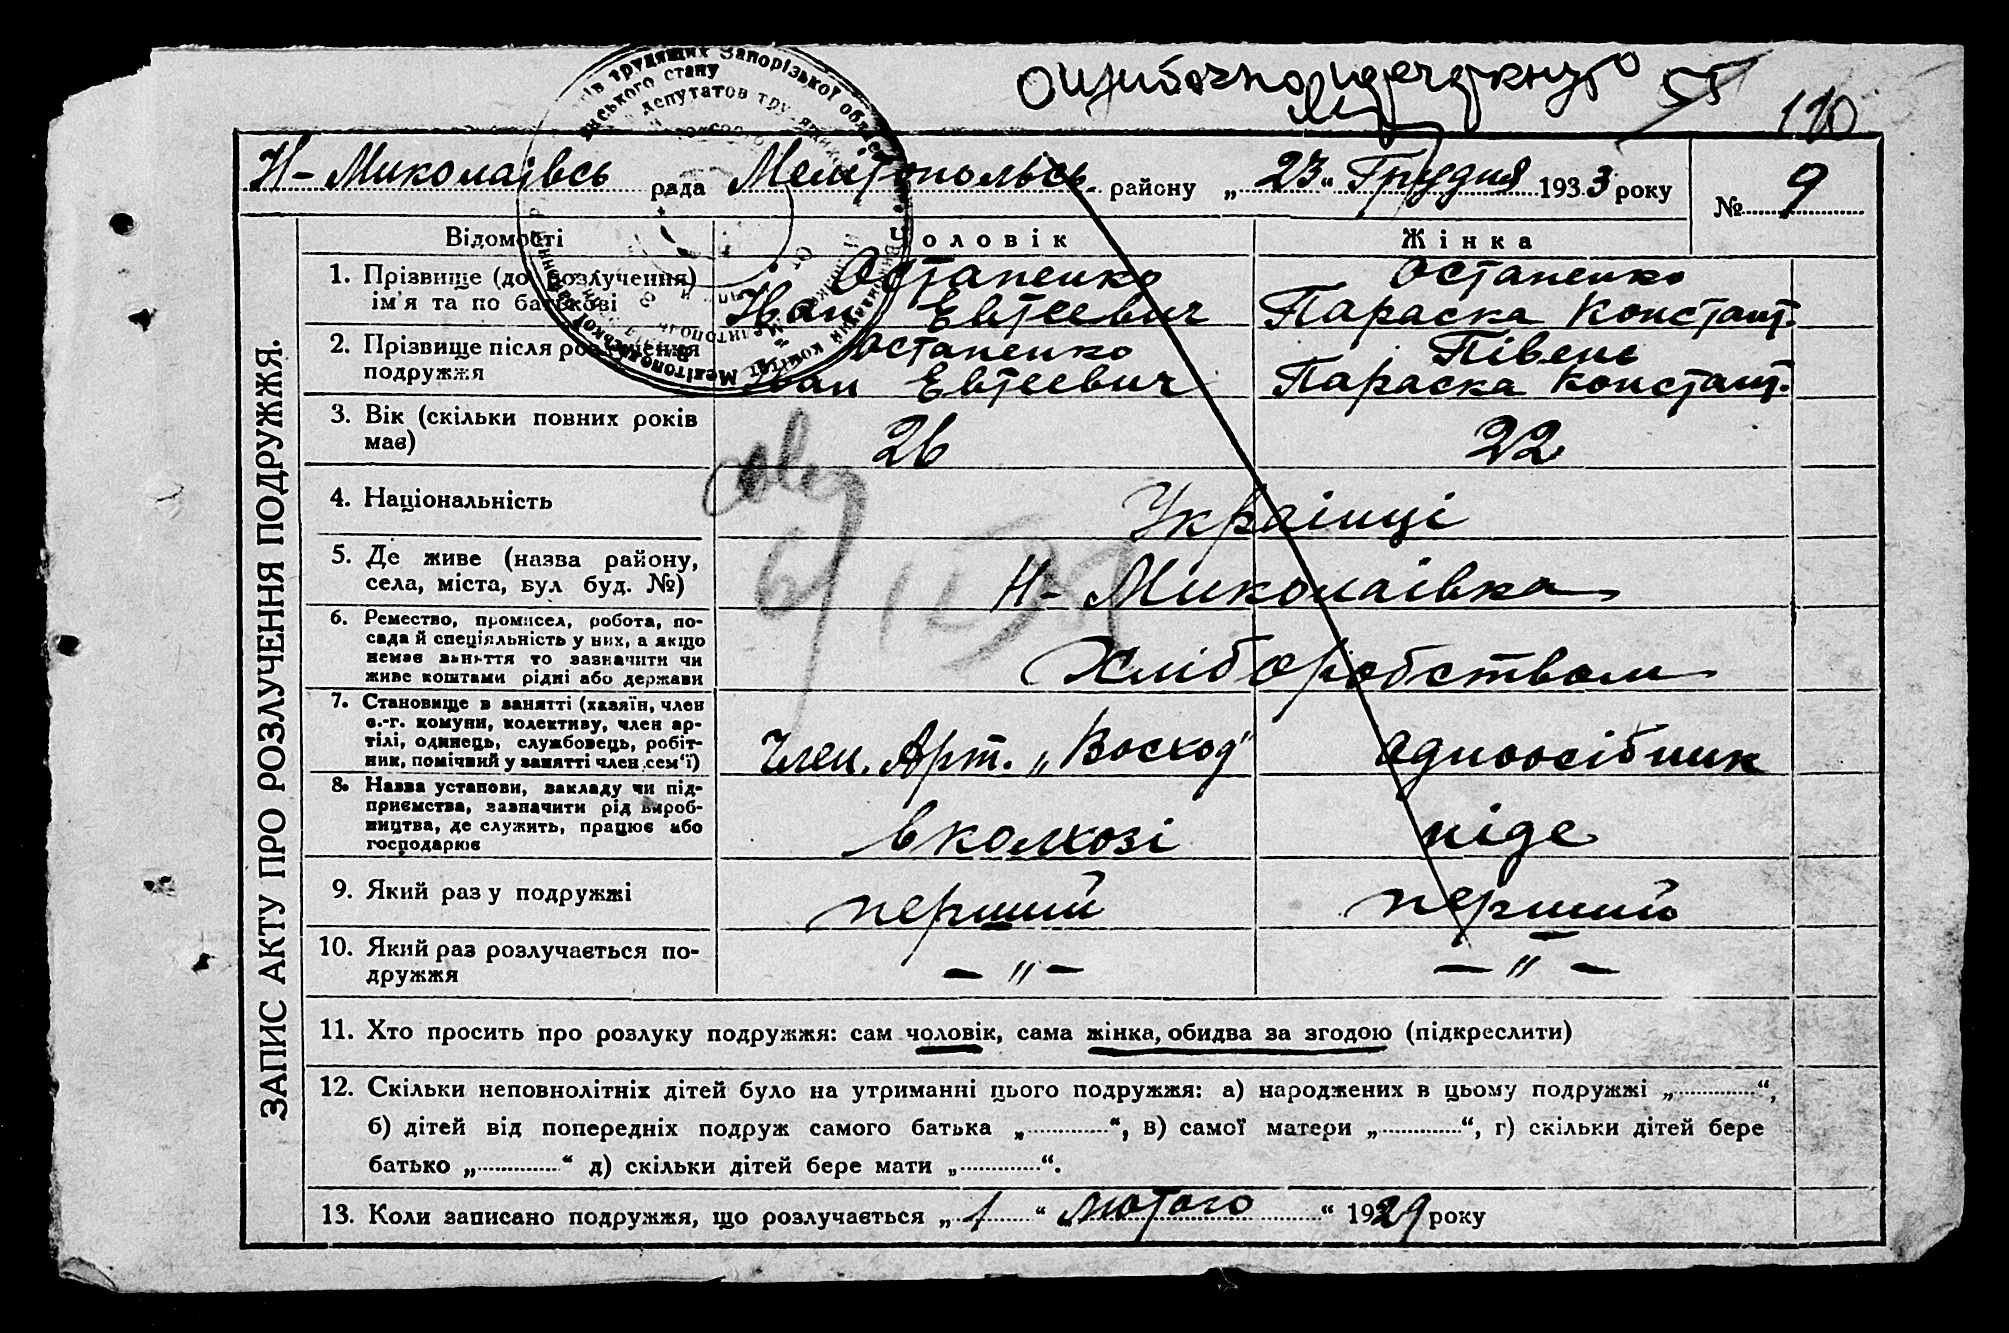 Ошибочно перечеркнуто
110
Н-Миколаівсь рада Мелітопольсь району „ 23 “ Грудня 1933 року № 9
ЗАПИС АКТУ ПРО РОЗЛУЧЕННЯ ПОДРУЖЖЯ.
Відомості Чоловік Жінка
1. Прізвище (до розлучення) Остапенко Остапенко
ім'я та по батькові Иван Евтеевич Параска Констант.
2. Прізвище після розлучення Остапенко Півень
подружжя Иван Евтеевич Параска Констант.
3. Вік (скільки повних років 26 22
має)
4. Національність Украінці
5. Де живе (назва району, Н-Миколаівка
села, міста, вул буд. №)
6. Ремество, промисел, робота, по-
сада й спеціяльність у них, а якщо Хліборобством
немає заняття то зазначити чи
живе коштами рідні або держави
7. Становище в занятті (хазяїн, член
с.-г. комуни, колективу, член ар-
тілі, одинець, службовець, робіт- Член. Арт. „Восход" одноосібник
ник, помічний у занятті член сем'ї)
8. Назва установи, закладу чи під-
приємства, зазначити рід вироб-
ництва, де служить, працює або в колхозі ніде
господарює
9. Який раз у подружжі перший перший
10. Який раз розлучається по- — " — — " —
дружжя
11. Хто просить про розлуку подружжя: сам чоловік, сама жінка, обидва за згодою (підкреслити)
12. Скільки неповнолітніх дітей було на утриманні цього подружжя: а) народжених в цьому подружжі „............“,
б) дітей від попередніх подруж самого батька „............“, в) самої матери „............“, г) скільки дітей бере
батько „............“ д) скільки дітей бере мати „............“.
13. Коли записано подружжя, що розлучається „ 1 “ лютого “ 1929 року